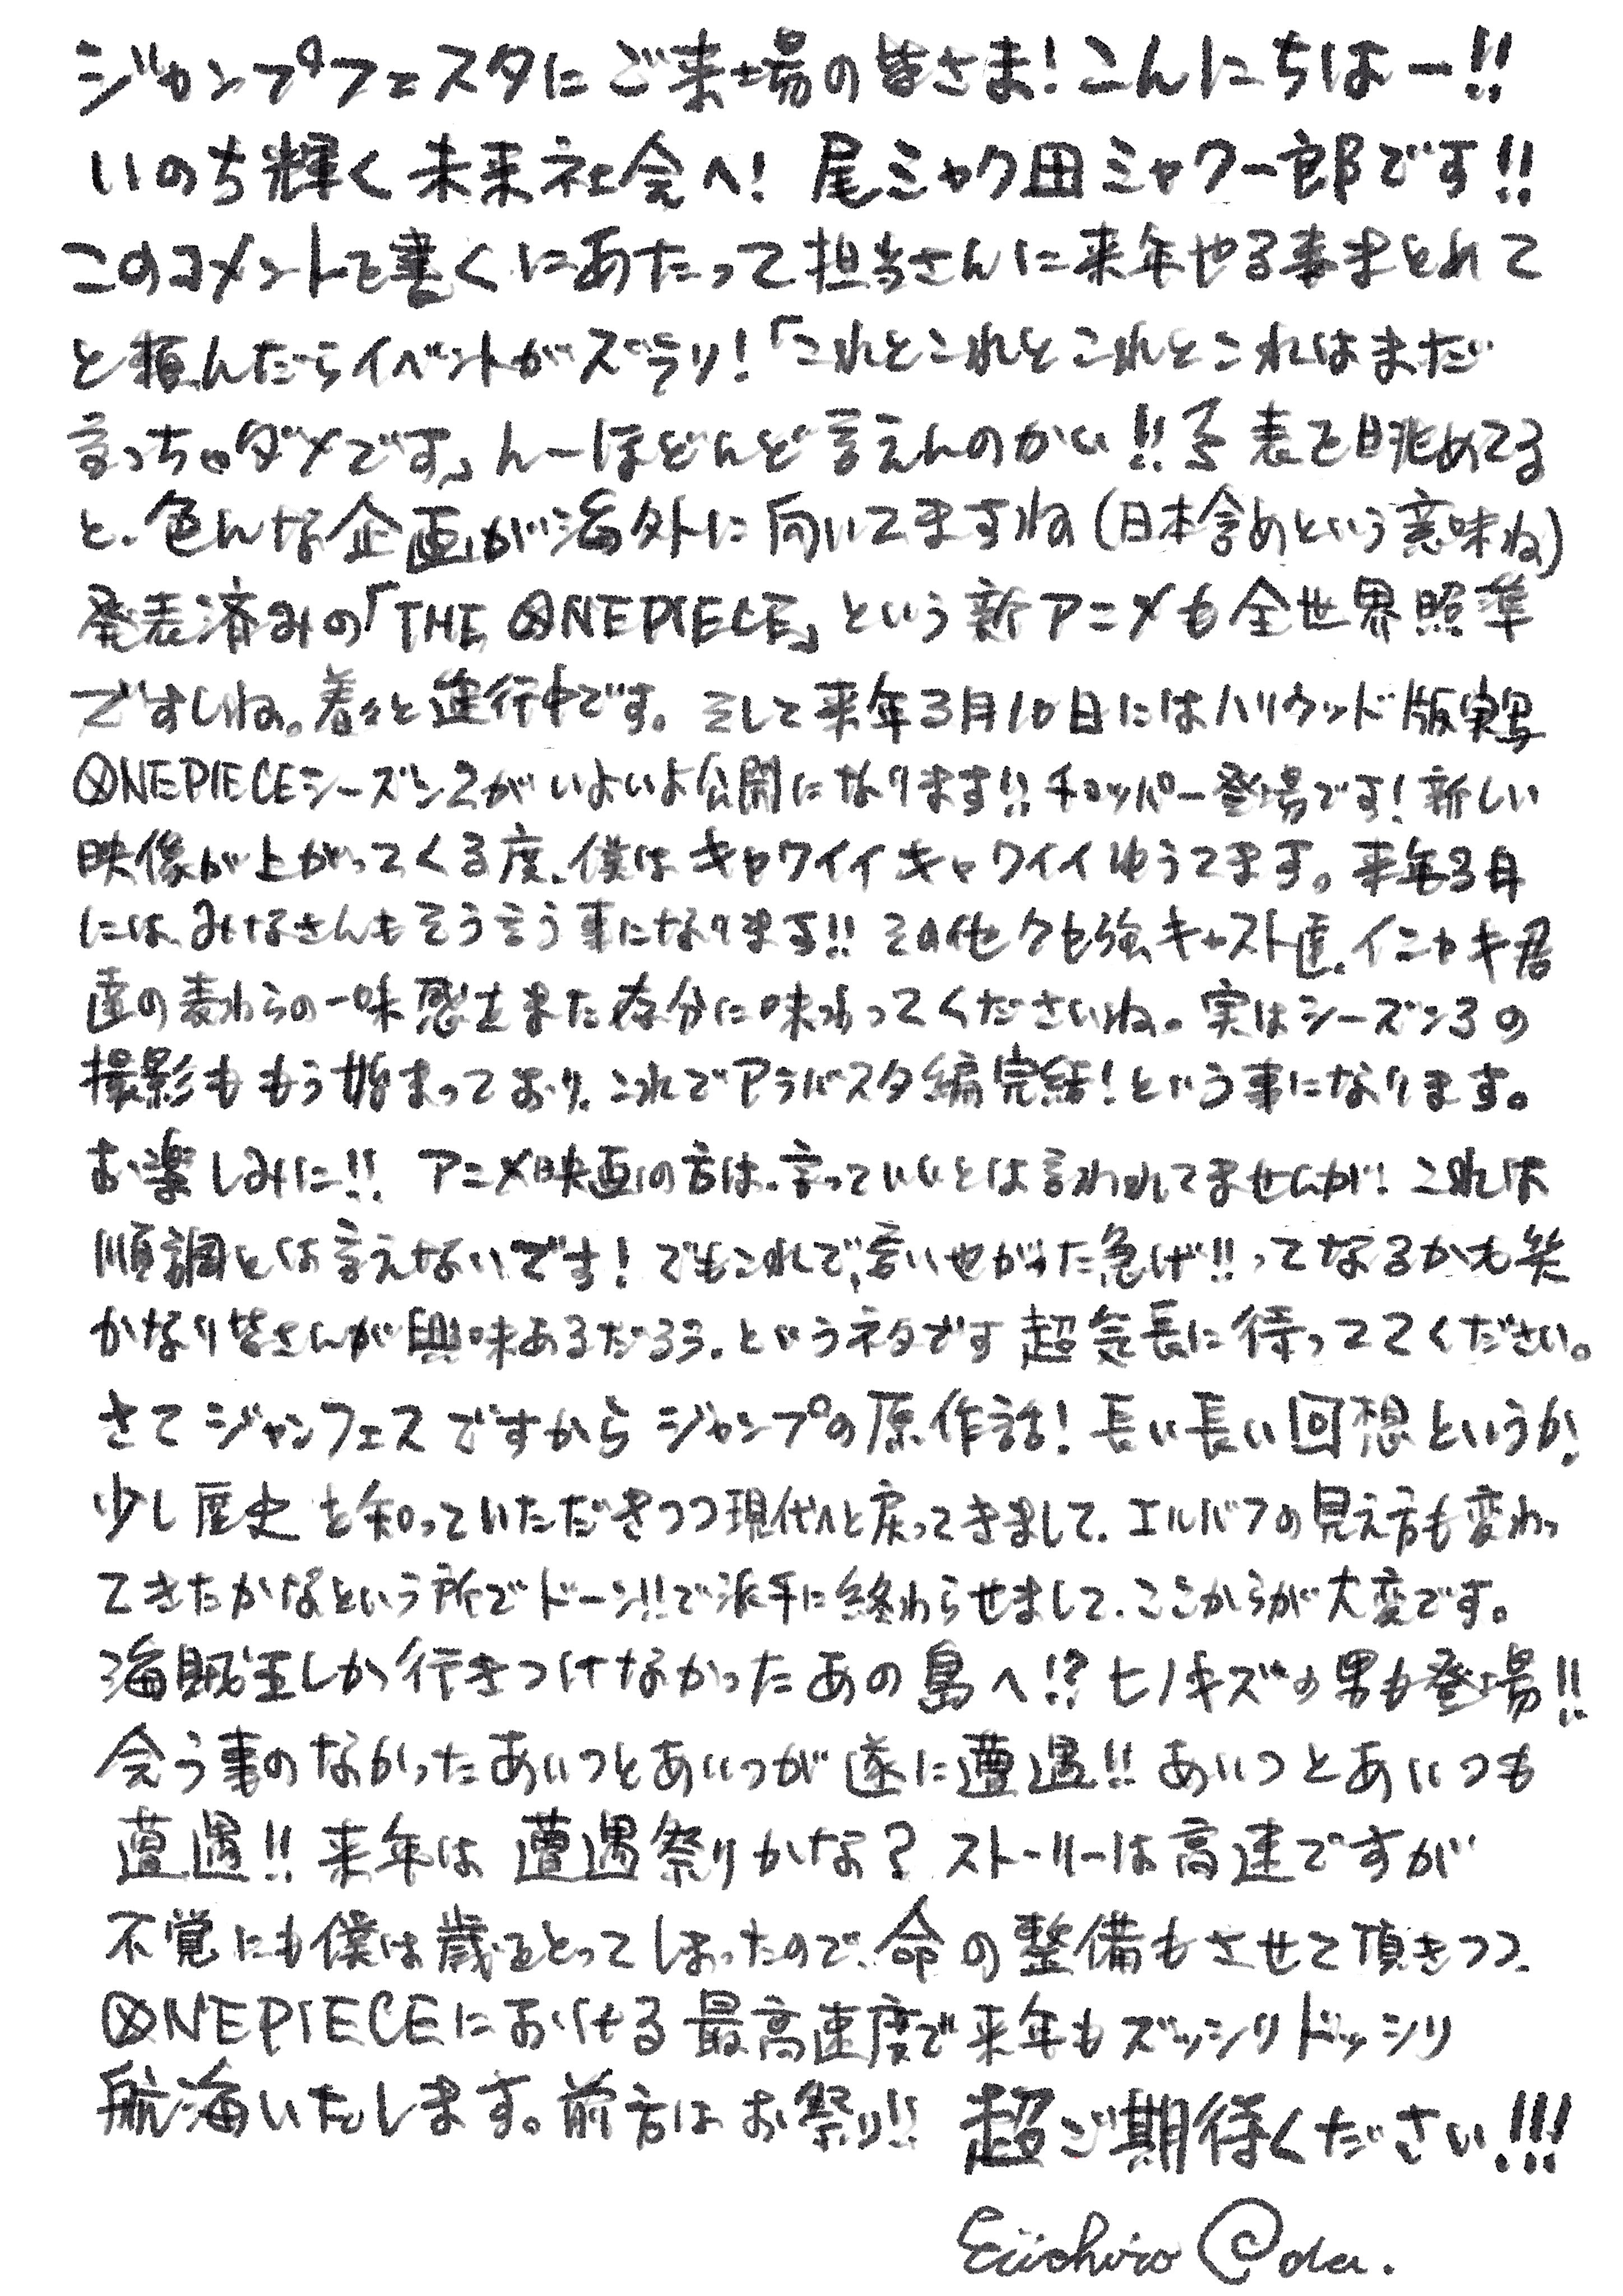 ジャンプフェスタにご来場の皆さま！こんにちはー!!
いのち輝く未来社会へ！ 尾ミャク田ミャク一郎です!!
このコメントを書くにあたって担当さんに来年やる事まとめて
と頼んだらイベントがズラリ！「これとこれとこれとこれはまだ
言っちゃダメです」んーほどんど言えんのかい!! 表を眺めてる
と、色んな企画が海外に向いてますね(日本含めという意味ね)
発表済みの「THE ONE PIECE」という新アニメも全世界照準
ですしね。着々と進行中です。そして来年3月10日にはハリウッド版実写
ONE PIECEシーズン2がいよいよ公開になります!! チョッパー登場です！新しい
映像が上がってくる度、僕はキャワイイキャワイイゆうてます。来年3月
には、みなさんもそう言う事になります!! その他クセ強キャスト達、イニャキ君
達の麦わらの一味感をまた存分に味わってくださいね。実はシーズン3の
撮影ももう始まっており、これでアラバスタ編完結！という事になります。
お楽しみに!! アニメ映画の方は、言っていいとは言われてませんが、これは
順調とは言えないです！でもこれで、言いやがった急げ!!ってなるかも笑
かなり皆さんが興味あるだろう、というネタです 超気長に待っててください。
さてジャンフェスですからジャンプの原作話！長い長い回想というか、
少し歴史を知っていただきつつ現代へと戻ってきまして、エルバフの見え方も変わっ
てきたかなという所でドーン!!で派手に終わらせまして、ここからが大変です。
海賊王しか行きつけなかったあの島へ!? ヒノキズの男も登場!!
会う事のなかったあいつとあいつが遂に遭遇!! あいつとあいつも
遭遇!! 来年は遭遇祭りかな？ ストーリーは高速ですが
不覚にも僕は歳をとってしまったので、命の整備もさせて頂きつつ、
ONE PIECEにおける最高速度で来年もズッシリドッシリ
航海いたします。前方はお祭り!! 超ご期待ください!!!
Eiichiro Oda.